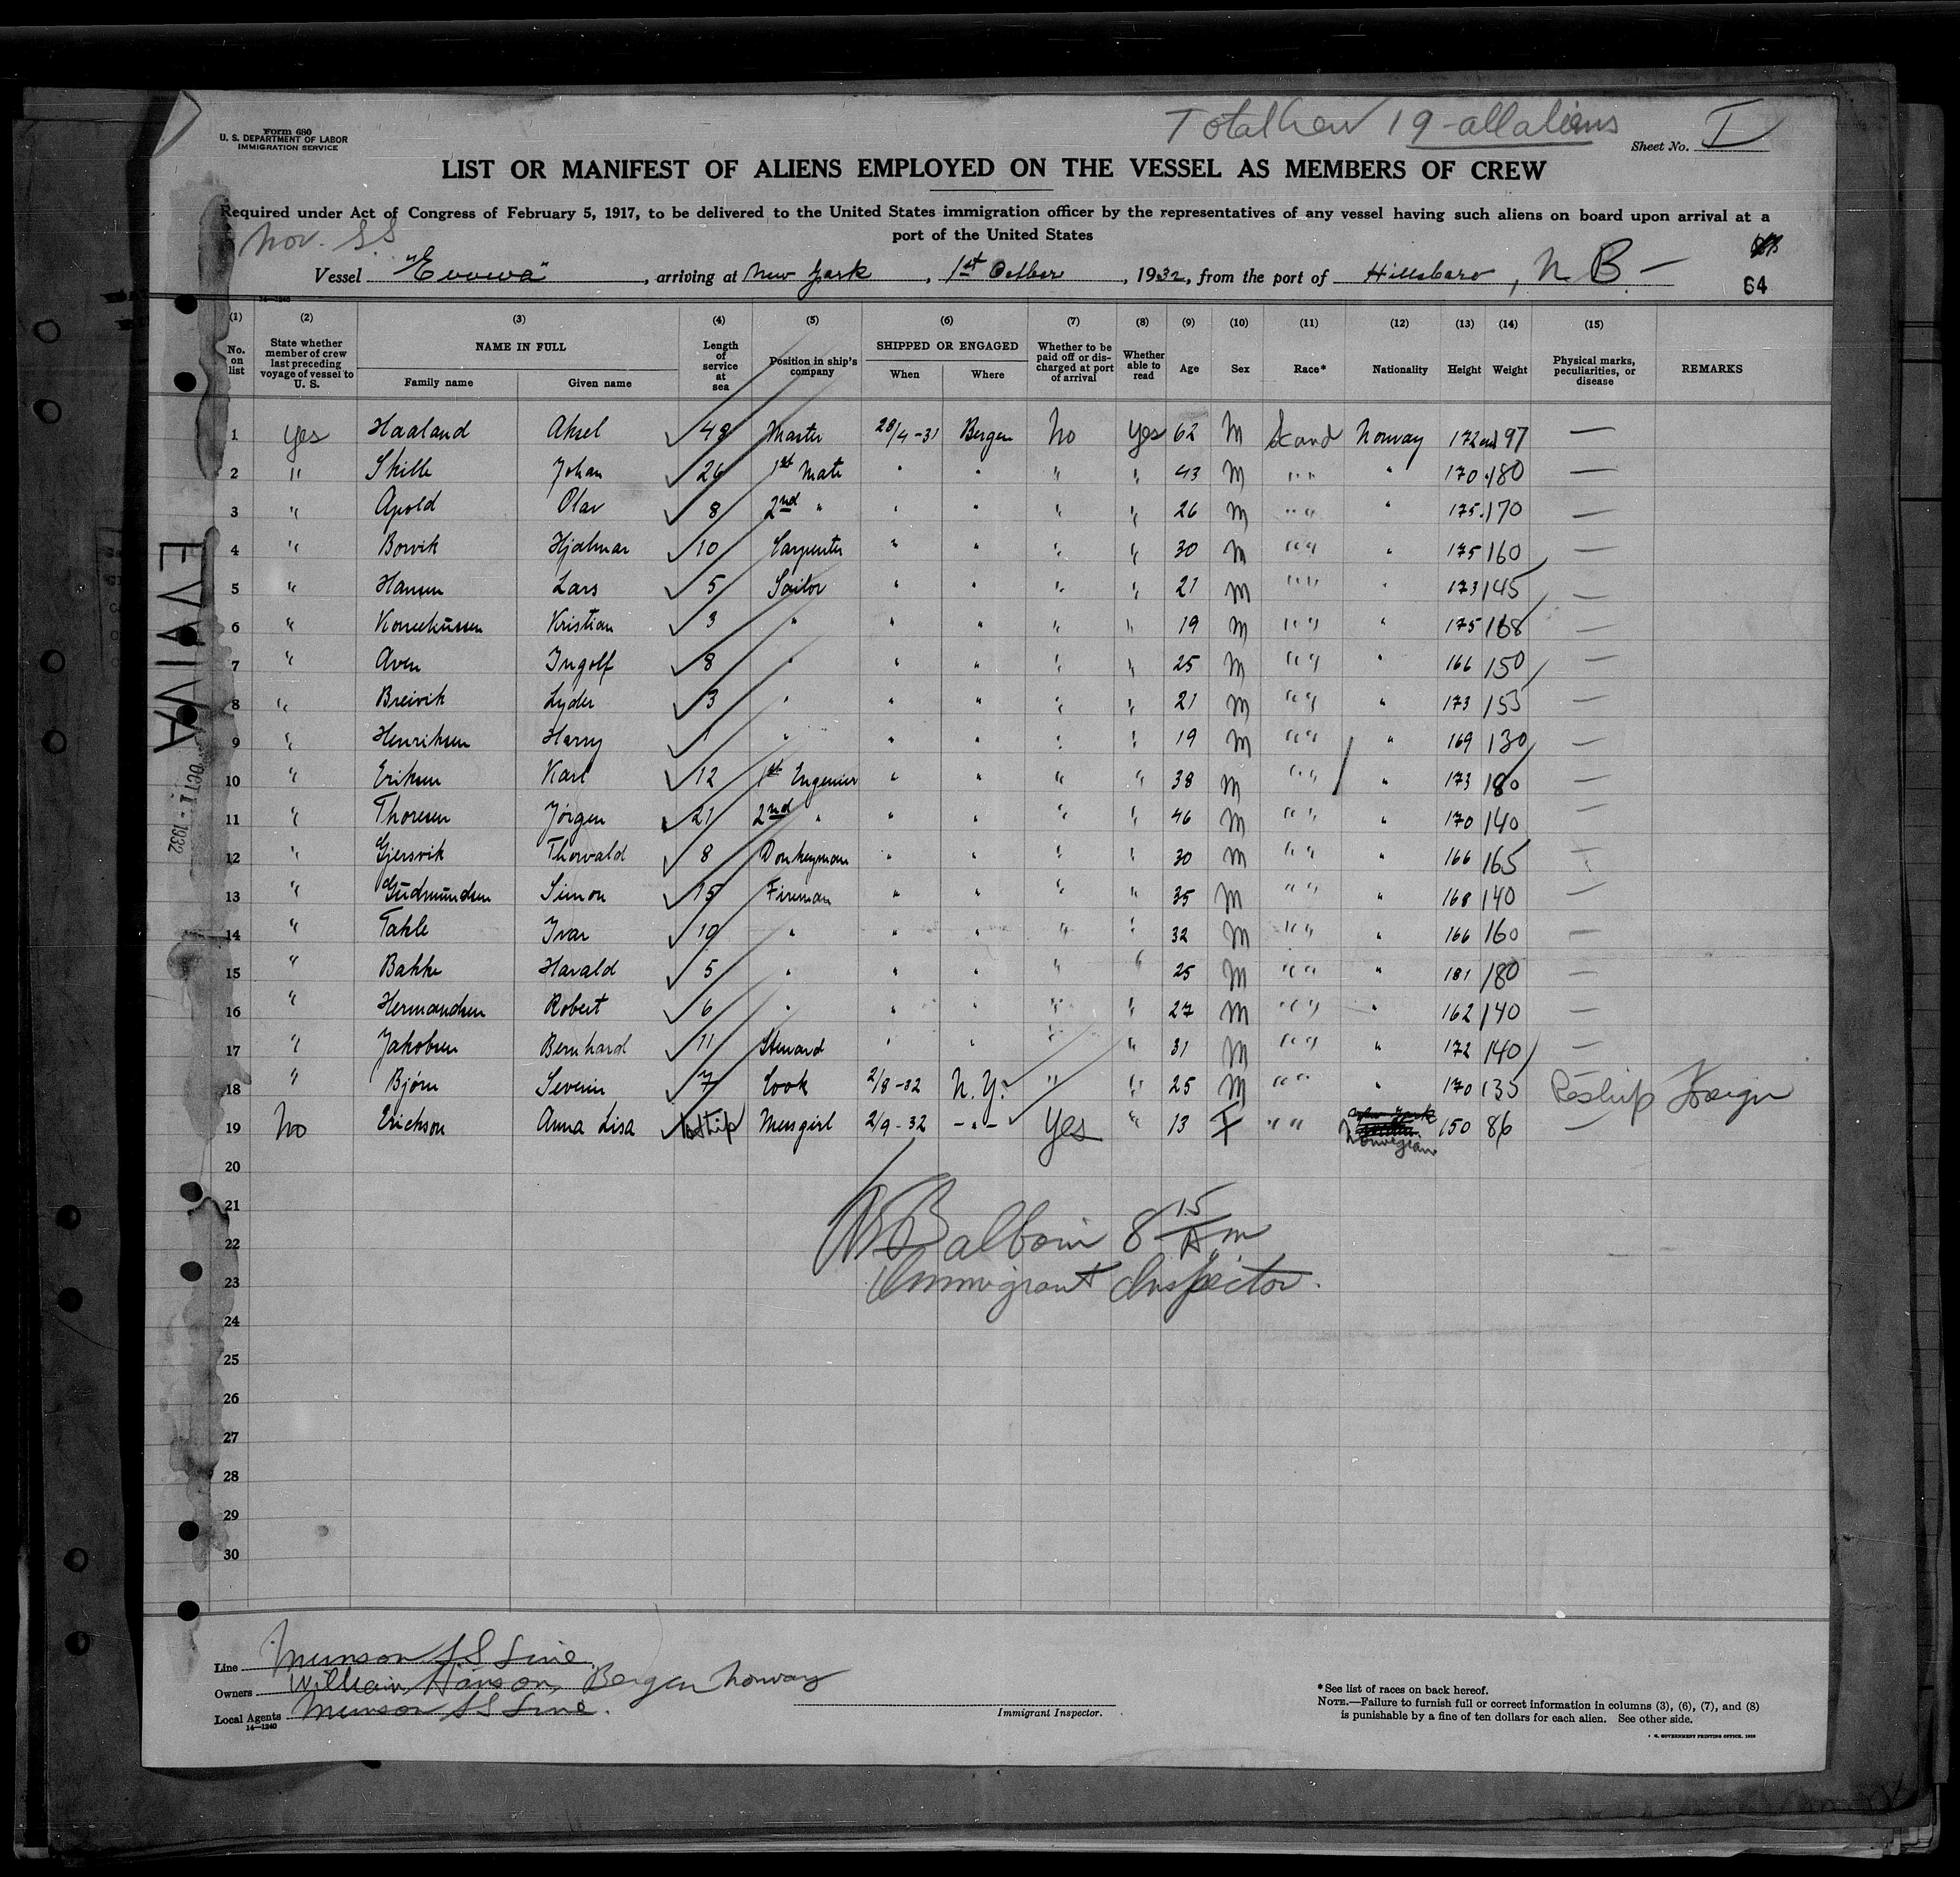 Total Crew 19 - all aliens
Form 680
U. S. DEPARTMENT OF LABOR
IMMIGRATION SERVICE
Sheet No. I
LIST OR MANIFEST OF ALIENS EMPLOYED ON THE VESSEL AS MEMBERS OF CREW
Required under Act of Congress of February 5, 1917, to be delivered to the United States immigration officer by the representatives of any vessel having such aliens on board upon arrival at a
port of the United States
Nor. SS
Vessel , arriving at New York , 1st , 1932, from the port of Hillsboro, N.B. —
64
(1) (2) (3) (4) (5) (6) (7) (8) (9) (10) (11) (12) (13) (14) (15)
No. on list
State whether member of crew last preceding voyage of vessel to U. S.
NAME IN FULL
Family name Given name
Length of service at sea
Position in ship's company
SHIPPED OR ENGAGED
When Where
Whether to be paid off or discharged at port of arrival
Whether able to read
Age Sex Race* Nationality Height Weight
Physical marks, peculiarities, or disease
REMARKS
1 yes Haaland Aksel 48 Master 28/4-31 Bergen No yes 62 M Scand Norway 172 cm 197 —
2 " Skille Johan 26 1st Mate " " " " 43 M " " " 170 180 —
3 " Apold Olav 8 2nd " " " " " 26 M " " " 175 170 —
4 " Borvik Hjalmar 10 Carpenter " " " " 30 M " " " 175 160 —
5 " Hansen Lars 5 Sailor " " " " 21 M " " " 173 145 —
6 " Kristian 3 " " " " " 19 M " " " 175 168 —
7 " Aven Ingolf 8 " " " " " 25 M " " " 166 150 —
8 " Breivik Lyder 3 " " " " " 21 M " " " 173 155 —
9 " Henriksen Harry 1 " " " " " 19 M " " " 169 130 —
10 " Eriksen Karl 12 1st Engenier " " " " 38 M " " " 173 180 —
11 " Thoresen Jørgen 21 2nd " " " " " 46 M " " " 170 140 —
12 " Gjersvik Thorvald 8 Donkeyman " " " " 30 M " " " 166 165 —
13 " Gudmundsen Simon 15 Fireman " " " " 35 M " " " 168 140 —
14 " Takle Ivar 10 " " " " " 32 M " " " 166 160 —
15 " Bakke Harald 5 " " " " " 25 M " " " 181 180 —
16 " Hermandsen Robert 6 " " " " " 27 M " " " 162 140 —
17 " Jakobsen Bernhard 11 Steward " " " " 31 M " " " 172 140 —
18 " Bjørn Severin 7 Cook 2/8-32 N.Y. " " 25 M " " " 170 135 Reship Foreign
19 No Erickson Anna Lisa 1st trip Messgirl 2/9-32 -"- Yes " 13 F " " Norwegian 150 86 —
20
21
22
23
24
25
26
27
28
29
30
8 15 A m
Immigrant Inspector.
EVVIVA
OCT 1 - 1932
Line Munson SS Line
Owners William Hanson, Bergen Norway
Local Agents Munson SS Line.
14—1240
Immigrant Inspector.
*See list of races on back hereof.
NOTE.—Failure to furnish full or correct information in columns (3), (6), (7), and (8)
is punishable by a fine of ten dollars for each alien. See other side.